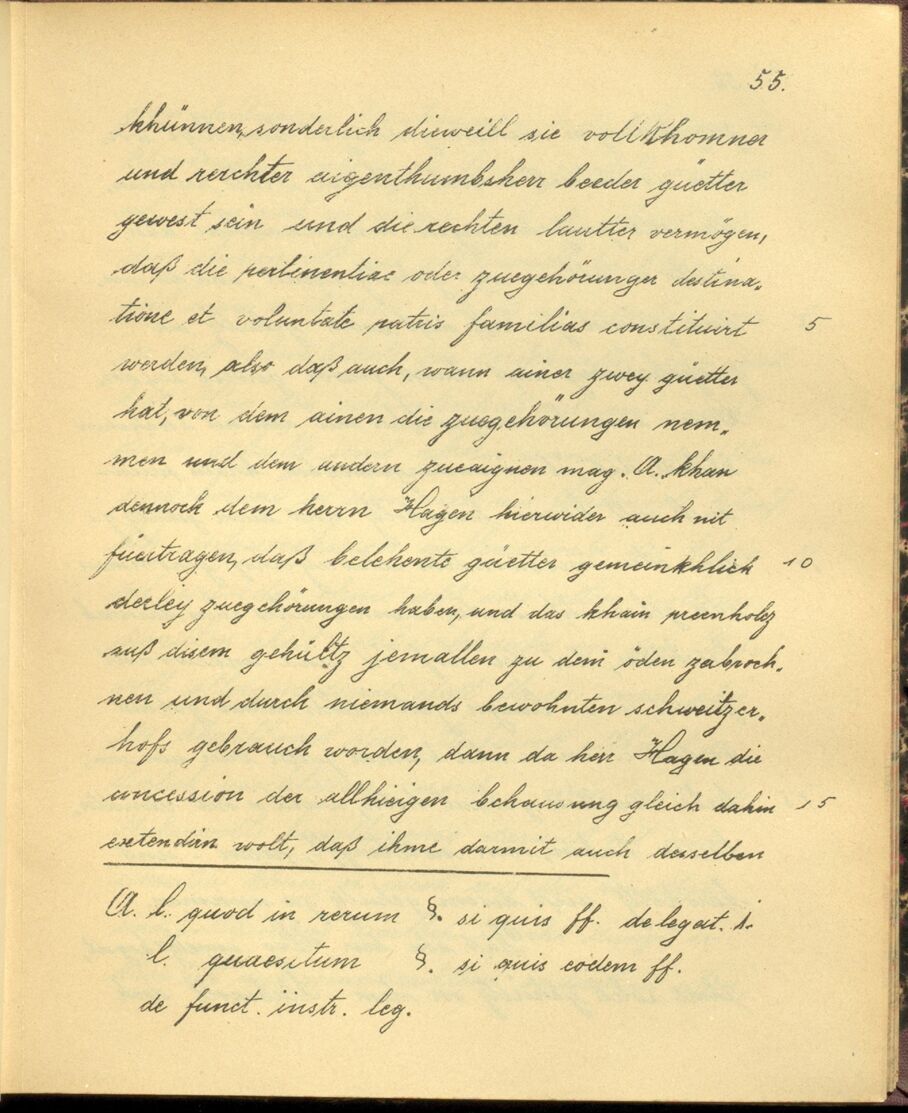 55.
khünnen, sonderlich dieweill sie vollkhomner
und rerchter aigenthumbsherr beeder güetter
gewest sein und die rechten lautter vermögen,
daß die pertinentiae oder zuegehörunger destina„
tione et voluntate patris familias constituirt 5
werden, also daß auch, wann ainer zwey güetter
hat, von dem ainen die zuegehörungen nem„
men und dem andern zueaignen mag. A. khan
dennoch dem herrn Hagen hierwider auch nit
füertragen, daß belehente güetter gemeinkhlich 10
derley zuegehörungen haben, und das khain preenholz
auß disem gehültz jemallen zu dem öden zerbroch„
nen und durch niemands bewohnten schweitzer„
hofs gebrauch worden, dann da herr Hagen die
concession der allhieigen behausung gleich dahin 15
extendirn wolt, daß ihme darmit auch desselben
A. l. quod in rerum §. si quis ff. de legat. 1.
l. quaesitum §. si quis eodem ff.
de funct. instr. leg.